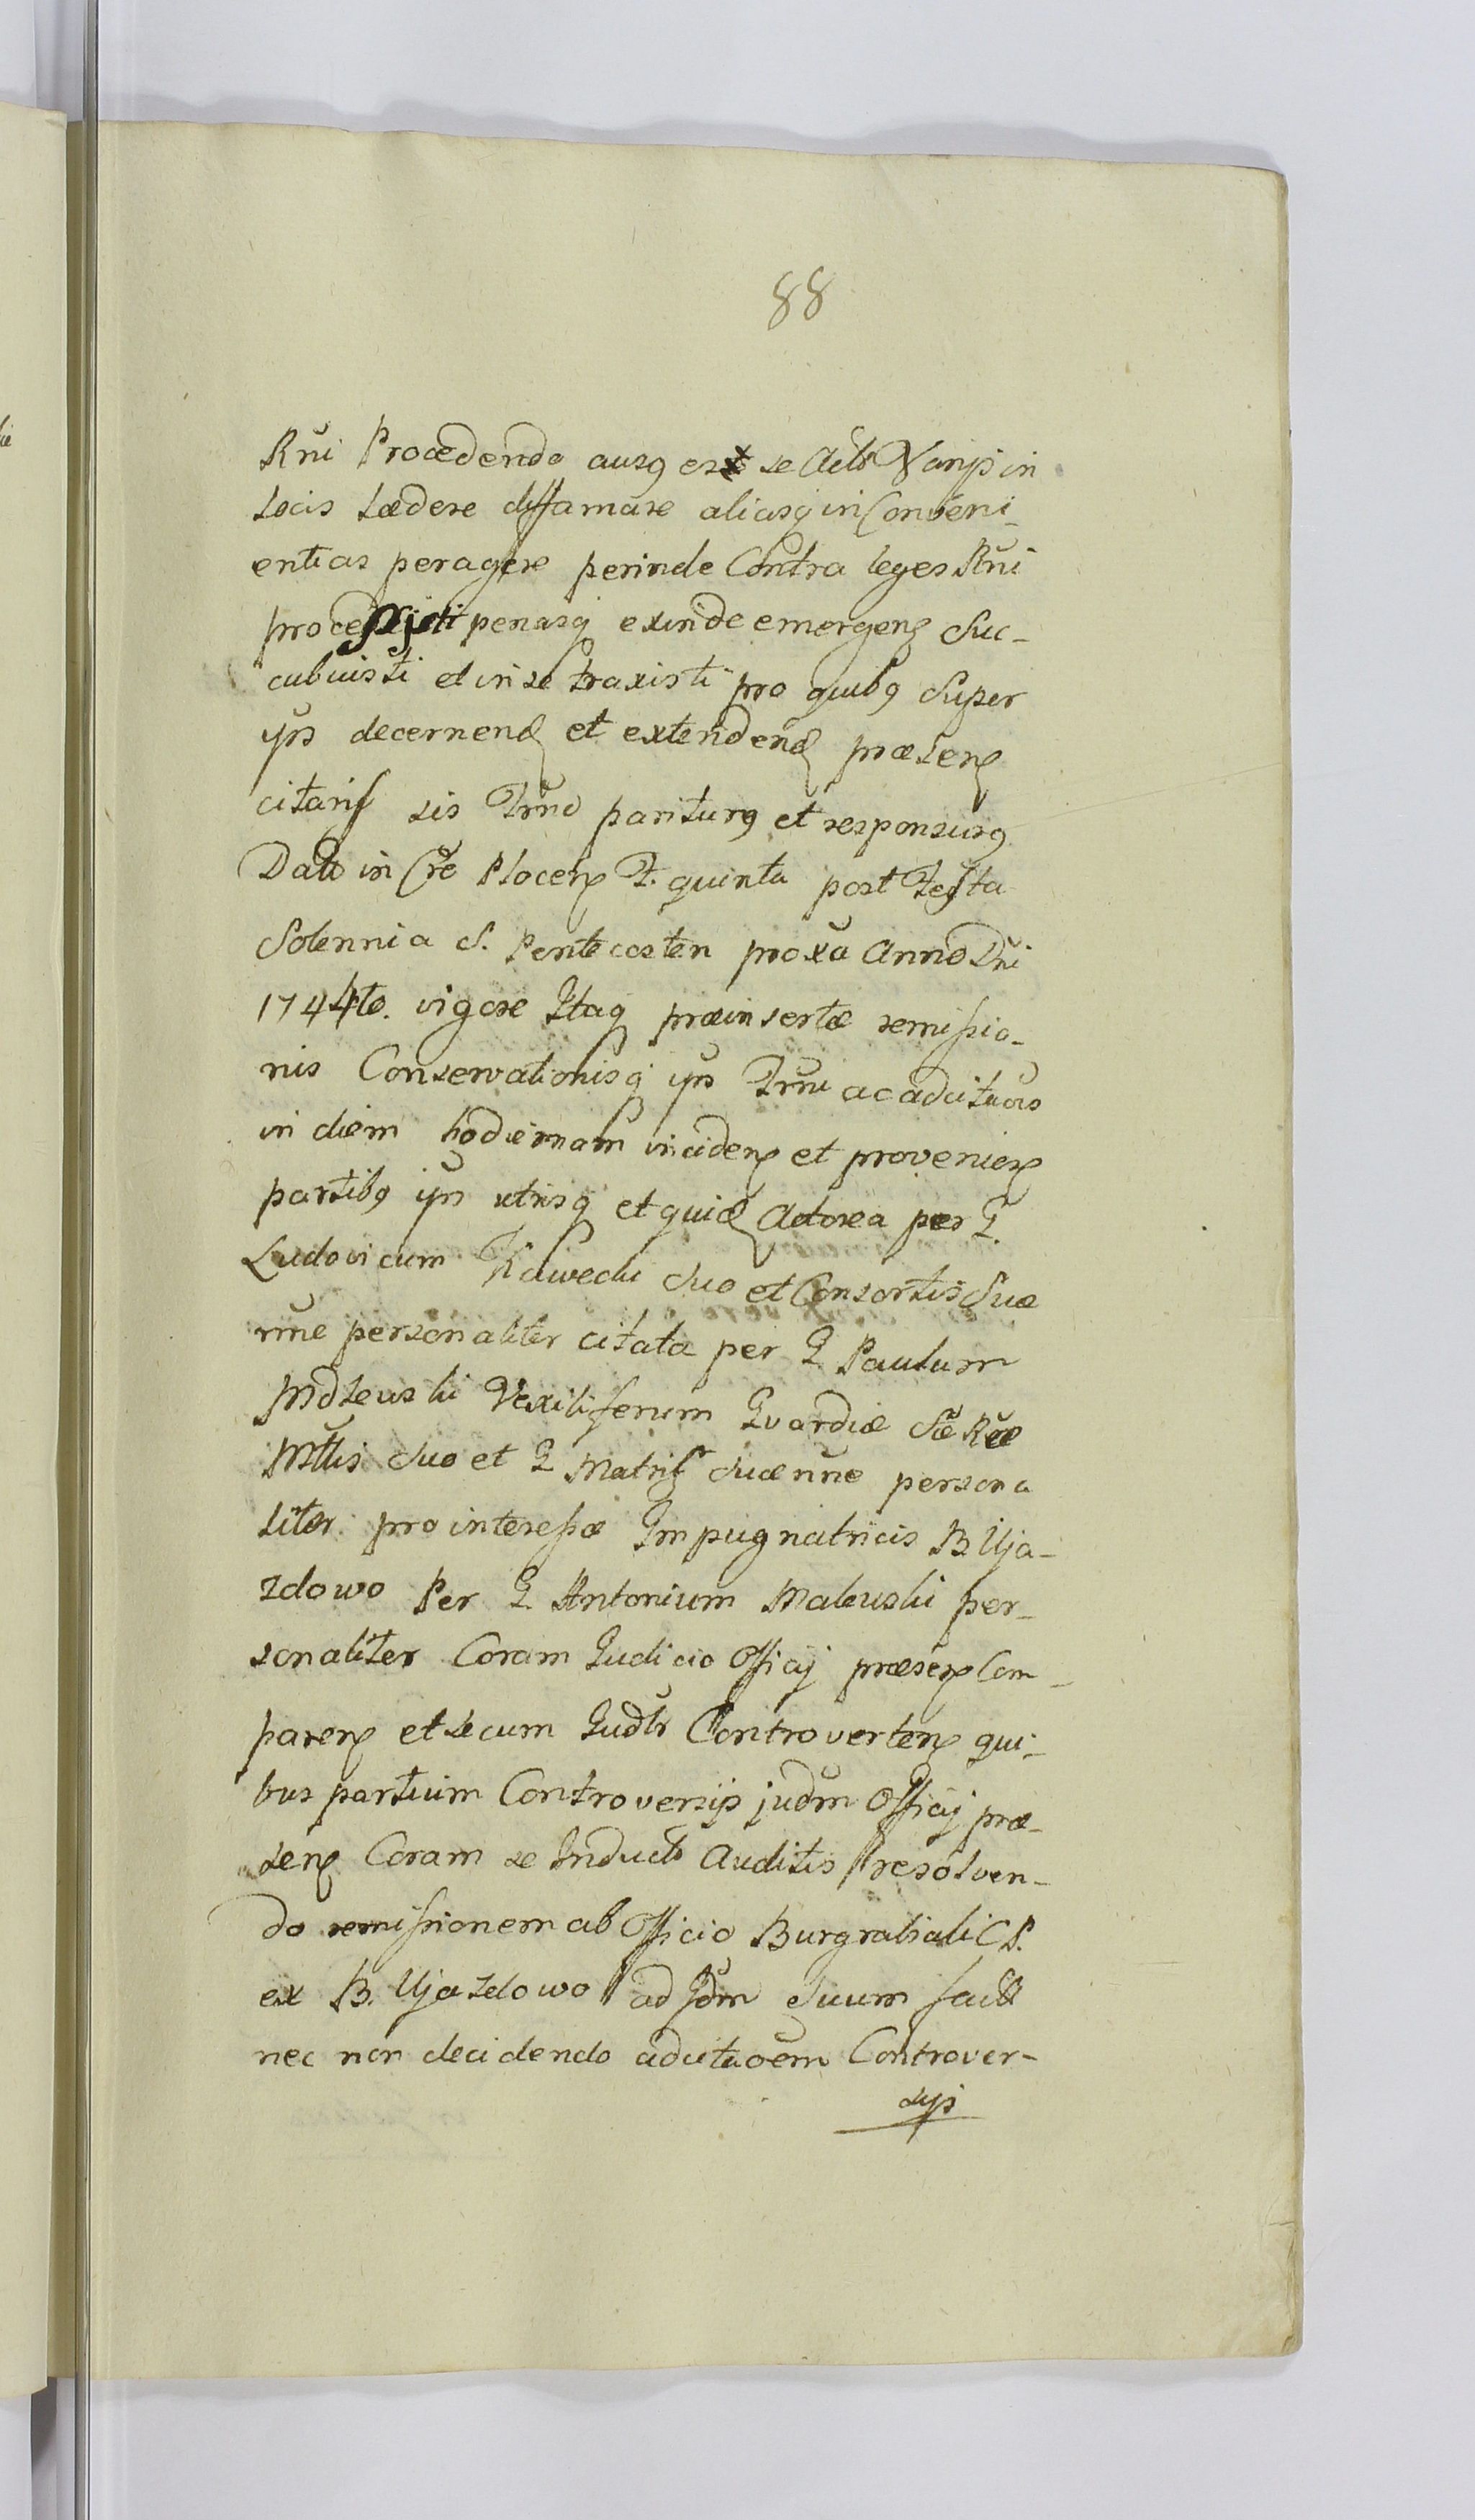 88
Rni Procedendo ausq est se Acto Varijs in
Locis Lædere diffamare aliasq in Conveni-
entias peragere perinde Contra leges Rni
processisti penasq exinde emergen Suc-
cubuisti et in se traxisti pro quibq Super
ijs decernend et extendend præsen
citaris sis Trno pariturq et responsurq
Dato in Cre Plocen F. quinta post Festa
Solennia S. Pentecosten proxa Anno Dni
1744to. vigore Itaq præinsertæ remissio-
nis Conservationisq ijs Trni ac adcitaōis
in diem hodiernam inciden et provenien
partibq ijs utrisq et quid Actorea per G.
Ludovicum suo et Consortis Suæ
nne personaliter citata per G. Paulum
Vexiliferum Gvardiæ Sæ Ræ
Mttis suo et G Matris suæ nne persona
liter pro interesse Impugnatricis B. Uja-
zdowo Per G. Antonium Malewski per-
sonaliter Coram Judicio Officij præsen Com-
paren et secum Judlr Controverten qui-
bus partium Controversijs judm Officij præ-
sen Coram se Inducto Auditis resolven-
do remissionem ab Officio Burgrabiali C P.
ex B. Ujazdowo ad Jdm suum
nec non decidendo adcitaōem Controver-
sijs